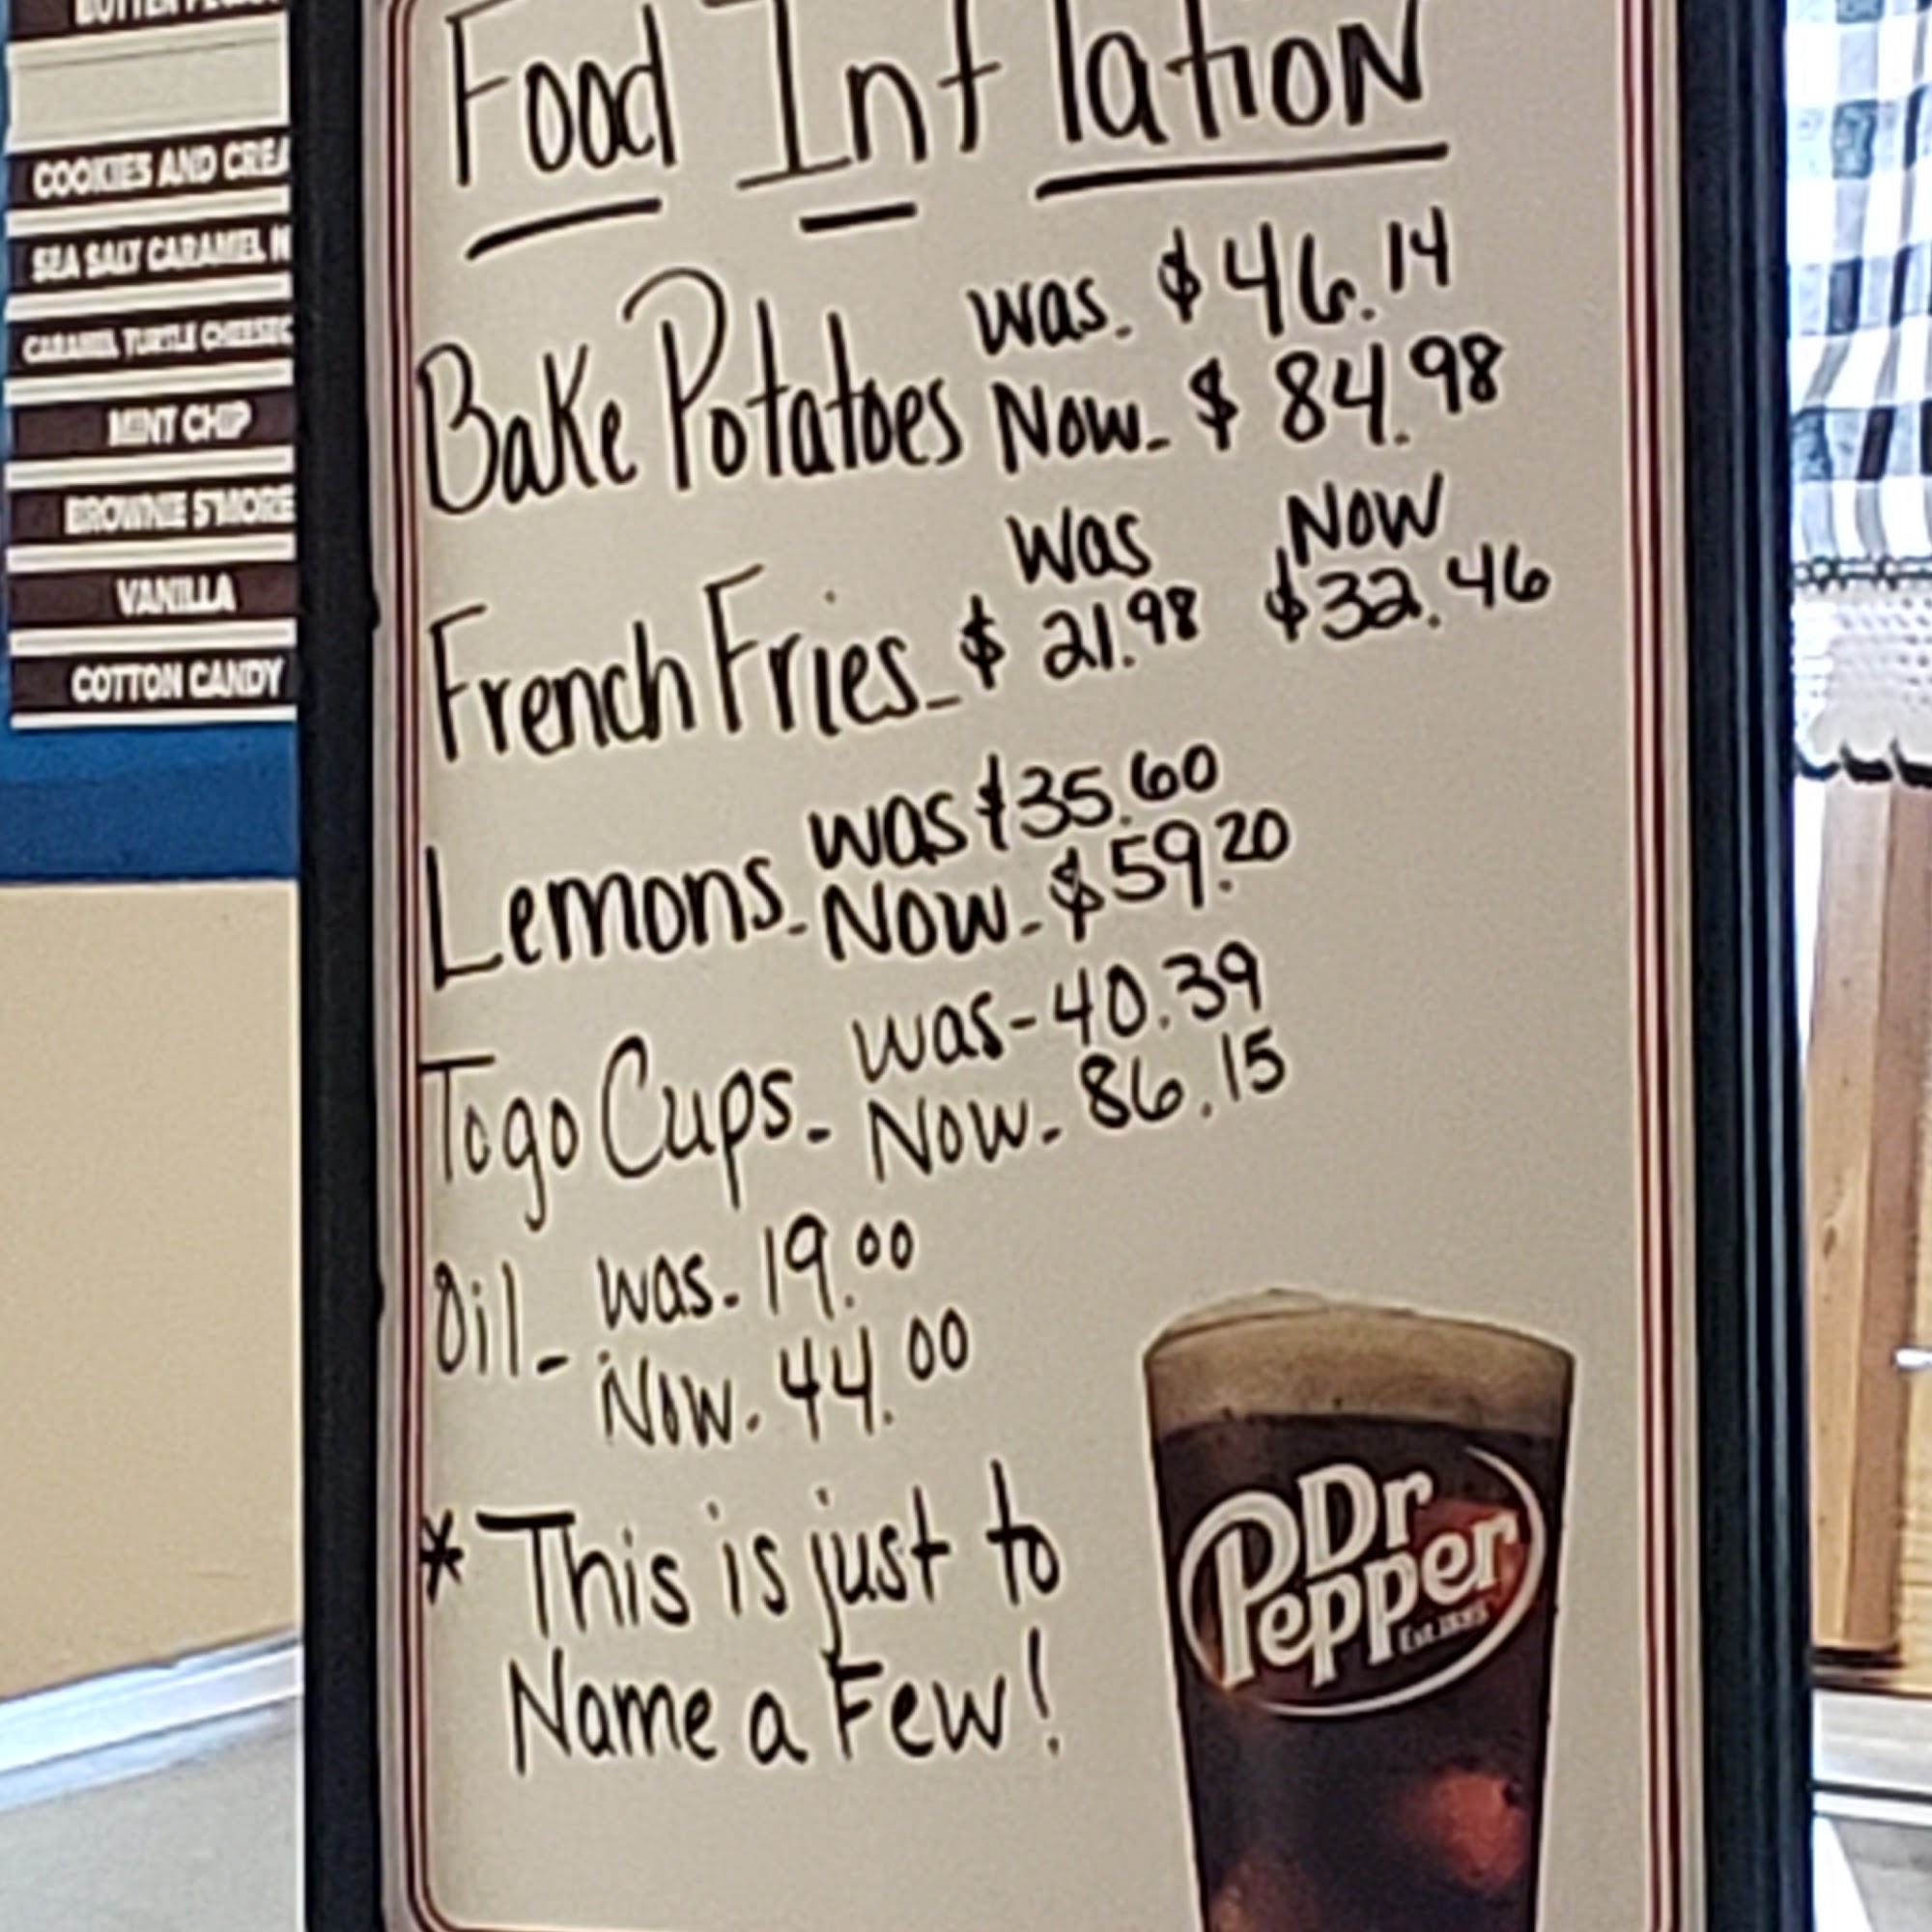 COOKIES AND CREA
SEA SALT CARAMEL N
CARAMEL TURTLE CHEESEC
MINT CHIP
BROWNIE S'MORE
VANILLA
COTTON CANDY
Food Inflation
Bake Potatoes was. $46.14
Now- $ 84.98
Was Now
French Fries- $ 21.98 $32.46
Lemons- was $35.60
Now- $59.20
Togo Cups- was- 40.39
Now- 86.15
Oil- was- 19.00
Now- 44.00
* This is just to
Name a Few!
Dr
Pepper